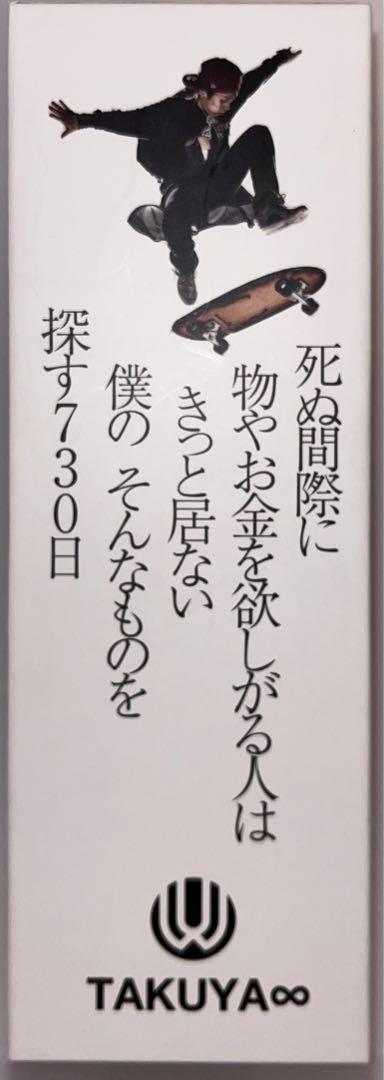 死ぬ間際に
物やお金を欲しがる人は
きっと居ない
僕の そんなものを
探す730日
TAKUYA∞